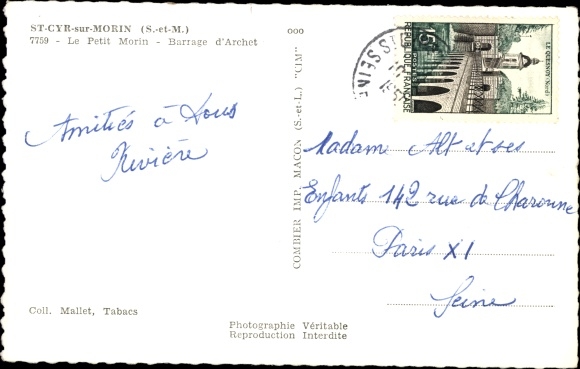 ST-CYR-sur-MORIN (S.-et-M.)
7759 - Le Petit Morin - Barrage d'Archet
Amitiés à tous
Rivière
Coll. Mallet, Tabacs
Photographie Véritable
Reproduction Interdite
COMBIER IMP. MACON (S.-et-L.) "CIM"
ooo
15F
POSTES
REPUBLIQUE FRANÇAISE
LE QUESNOY-Nord
SEINE
Madame Alt et ses
Enfants 142 rue de Charonne
Paris XI
Seine